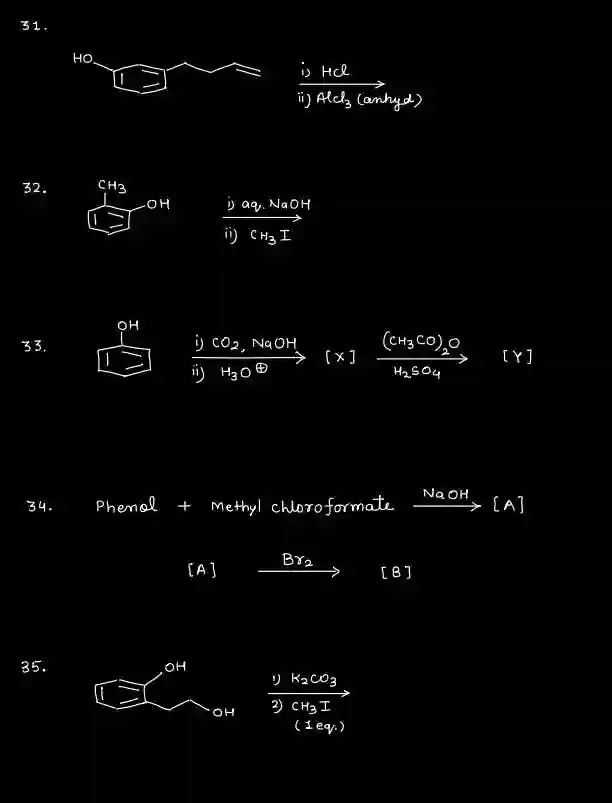 31.
HO
i) HCl
ii) AlCl3 (anhyd)
32.
CH3
OH
i) aq. NaOH
ii) CH3 I
33.
OH
i) CO2, NaOH
ii) H3O⊕
[X]
(CH3CO)2O
H2SO4
[Y]
34. Phenol + Methyl chloroformate NaOH [A]
[A] Br2 [B]
35.
OH
OH
1) K2CO3
2) CH3 I
(1 eq.)